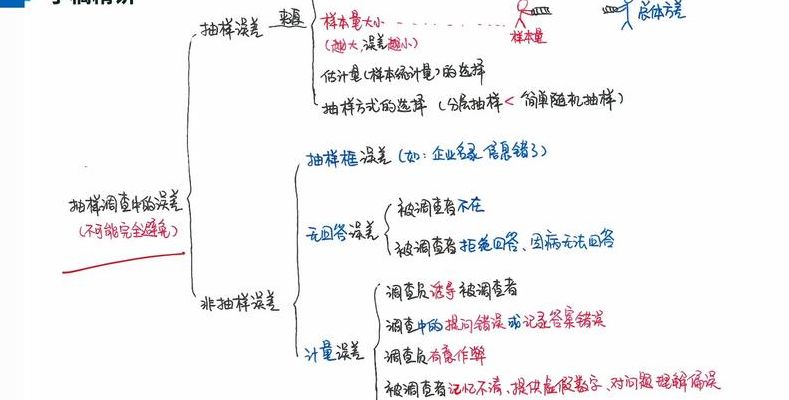 抽样误差
来源
样本量大小
(越大,误差越小)
样本量
总体方差
估计量(样本统计量)的选择
抽样方式的选择(分层抽样<简单随机抽样)
抽样调查中的误差
(不可能完全避免)
非抽样误差
抽样框误差(如:企业名录信息错了)
无回答误差
被调查者不在
被调查者拒绝回答、因病无法回答
计量误差
调查员诱导被调查者
调查中的提问错误或记录答案错误
调查员有意作弊
被调查者记忆不清、提供虚假数字、对问题理解偏误